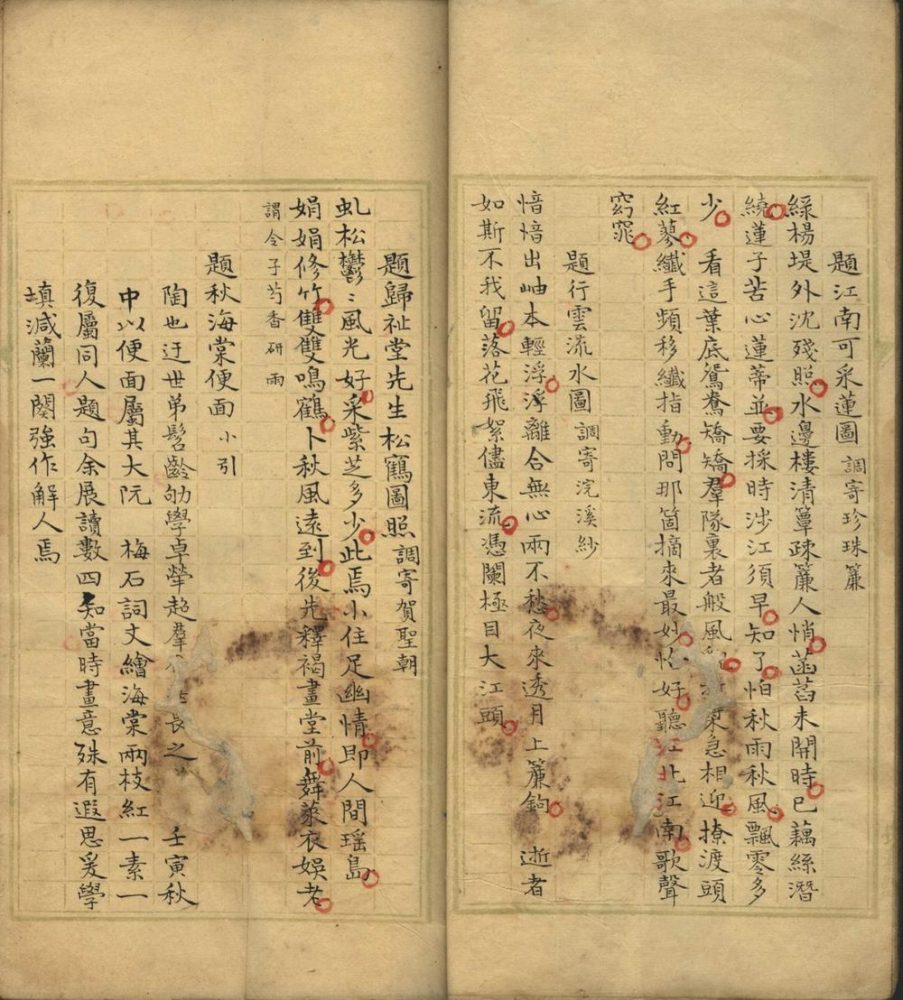 題江南可采蓮圖 調寄珍珠簾
綠楊堤外沈殘照水邊樓清簟疎簾人悄菡萏未開時已藕絲潛
繞蓮子苦心蓮蒂並要採時涉江須早知了怕秋雨秋風飄零多
少 看這葉底鴛鴦矯矯羣隊裏者般風急相迎撩渡頭
紅蓼纖手頻移纖指動問那箇摘來最妙恰好聽江北江南歌聲
窈窕
題行雲流水圖 調寄浣溪紗
愔愔出岫本輕浮浮離合無心雨不愁夜來透月上簾鉤 逝者
如斯不我留落花飛絮儘東流憑闌極目大江頭
題歸祉堂先生松鶴圖照 調寄賀聖朝
虬松鬱〻風光好采紫芝多少此焉小住足幽情即人間瑤島
娟娟修竹雙雙鳴鶴卜秋風遠到後先釋褐畫堂前舞萊衣娛老
謂令子芍香研雨
題秋海棠便面 小引
陶也迂世弟髫齡劬學卓犖超羣長之 壬寅秋
中以便面屬其大阮 梅石詞丈繪海棠兩枝紅一素一
復屬同人題句余展讀數四知當時畫意殊有遐思爰學
填減蘭一闋強作解人焉